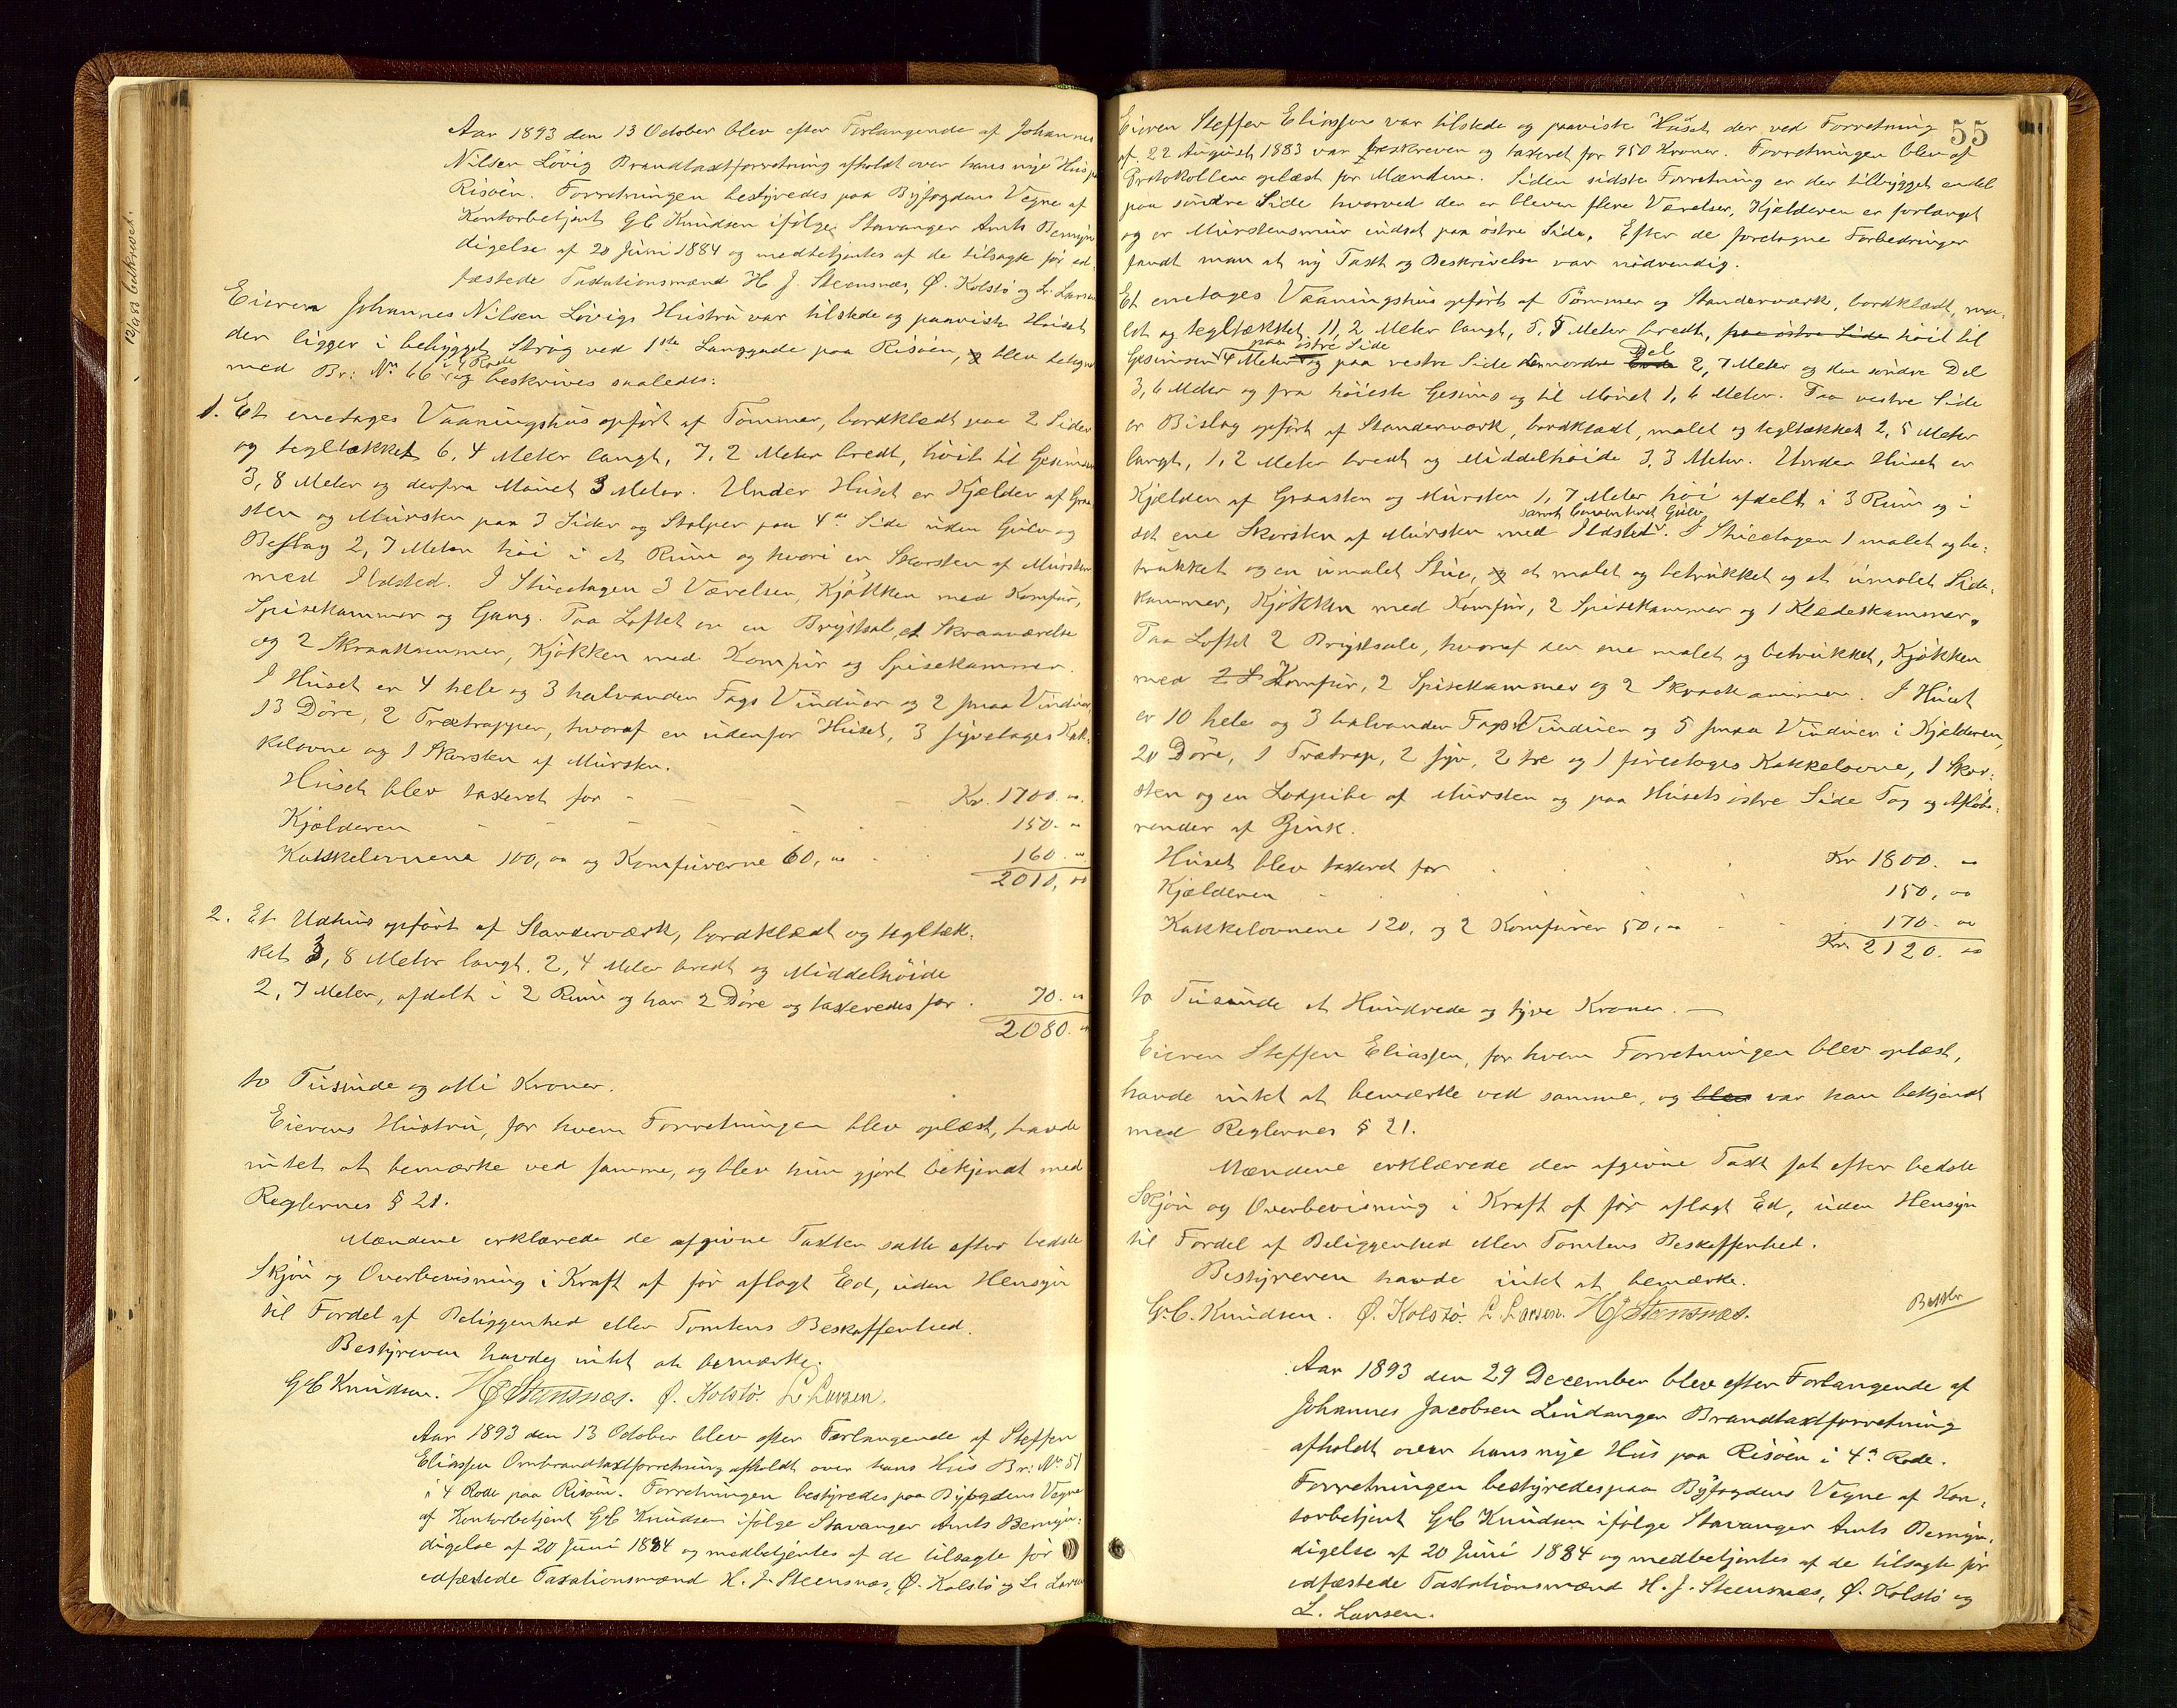 Aar 1893 den 13 October blev efter Forlangende af Johannes
Nilsen Lövig Brandtaxtforretning afholdt over hans nye Hus paa
Risöen. Forretningen bestyredes paa Byfogdens Vegne af
Kontorbetjent G. C. Knudsen ifölge Stavanger Amts Bemyn
digelse af 20 Juni 1884 og medbetjentes af de tilsagte för ed-
fæstede Taxtationsmænd H J. Steensnæs, Ø. Kolstö og L. Larsen
Eieren Johannes Nilsen Lövigs Hustru var tilstede og paaviste Huset
der ligger i bebygget Strög ved 1ste Langgade paa Risöen, blev betegnet
i 4 Rode
med Br: No 66 og beskrives saaledes:
1. Et enetages Vaaningshus opfört af Tömmer, bordklædt paa 2 Sider
og tegltækket 6,4 Meter langt, 7,2 Meter bredt, höit til Gesimsen
3,8 Meter og derfra Mönet 3 Meter. Under Huset er Kjælder af Graa-
sten og Mursten paa 3 Sider og Stolper paa 4de Side uden Gulv og
Beslag 2,7 Meter höi i et Rum og hvori er Skorsten af Mursten
med Ildsted. I Stueetagen 3 Værelser, Kjökken med Komfur,
Spisekammer og Gang. Paa Loftet er en Brystsal, et Skraaværelse
og 2 Skraakammer, Kjökken med Komfur og Spisekammer.
I Huset er 4 hele og 3 halvanden Fags Vinduer og 2 smaa Vinduer
13 Döre, 2 Trætrapper, hvoraf en udenfor Huset, 3 syvetages Kak-
kelovne og 1 Skorsten af Mursten.
Huset blev taxeret for Kr. 1700. "
Kjælderen 150. "
Kakkelovnene 100, " og Komfurerne 60, " 160. "
2010, "
2. Et Udhus opfört af Standerværk, bordklædt og tegltæk-
ket 3,8 Meter langt, 2,4 Meter bredt og Middelhöide
2,7 Meter, afdelt i 2 Rum og har 2 Döre og taxeredes for 70. "
2080. "
to Tusinde og otti Kroner.
Eierens Hustru, for hvem Forretningen blev oplæst, havde
intet at bemærke ved samme, og blev hun gjort bekjendt med
Reglernes § 21.
Mændene erklærede de afgivne Taxter satte efter bedste
Skjön og Overbevisning i Kraft af för aflagt Ed, uden Hensyn
til Fordel af Beliggenhed eller Tomtens Beskaffenhed.
Bestyreren havde intet at bemærke.
G C Knudsen. H J Stensnæs. Ø. Kolstö. L Larsen.
Aar 1893 den 13 October blev efter Forlangende af Steffen
Eliassen Ombrandtaxtforretning afholdt over hans Hus Br: No 51
i 4 Rode paa Risöen. Forretningen bestyredes paa Byfogdens Vegne
af Kontorbetjent G C Knudsen ifölge Stavanger Amts Bemyn-
digelse af 20 Juni 1884 og medbetjentes af de tilsagte för
edfæstede Taxationsmænd H. J. Steensnæs, Ø. Kolstö og L. Larsen
55
Eieren Steffen Eliassen var tilstede og paaviste Huset der ved Forretning
af 22 August 1883 var beskreven og taxeret for 950 Kroner. Forretningen blev af
Protokollen oplæst for Mændene. Siden sidste Forretning er der tilbygget endel
paa söndre Side hvorved der er bleven flere Værelser, Kjælderen er forlænget
og er Murstensmur indsat paa östre Side. Efter de foretagne Forbedringer
fandt man at ny Taxt og Beskrivelse var nödvendig.
Et enetages Vaaningshus opfört af Tömmer og Standerværk, bordklædt, ma-
let og tegltækket, 11,2 Meter langt, 5,5 Meter bredt, paa östre Side höit til
paa östre Side Del
Gesimsen 4 Meter og paa vestre Side den nordre Ende 2,7 Meter og den söndre Del
3,6 Meter og fra höieste Gesims og til Mönet 1,6 Meter. Paa vestre Side
er Bislag opfört af Standerværk, bordklædt, malet og tegltækket 2,5 Meter
langt, 1,2 Meter bredt og Middelhöide 3,3 Meter. Under Huset er
Kjælder af Graasten og Mursten 1,7 Meter höi afdelt i 3 Rum og i
samt Gulv
det ene Skorsten af Mursten med Ildsted. I Stueetagen 1 malet og be-
trukket og en umalet Stue, og et malet og betrukket og et umalet Side-
kammer, Kjökken med Komfur, 2 Spisekammer og 1 Klædeskammer.
Paa Loftet 2 Brystsale, hvoraf den ene malet og betrukket, Kjökken
med Komfur, 2 Spisekammer og 2 Skraakammer. I Huset
er 10 hele og 3 halvanden Fags Vinduer og 5 smaa Vinduer i Kjælderen,
20 Döre, 1 Trætrap, 2 syv, 2 tre og 1 fireetages Kakkelovne, 1 Skor-
sten og en Lodpibe af Mursten og paa Husets östre Side Tag og Aflöbs-
render af Zink.
Huset blev taxeret for Kr 1800. "
Kjælderen 150, "
Kakkelovnene 120, og 2 Komfurer 50, " 170. "
Kr. 2120. "
to Tusinde et Hundrede og tyve Kroner.
Eieren Steffen Eliassen, for hvem Forretningen blev oplæst,
havde intet at bemærke ved samme, og blev var han bekjendt
med Reglernes § 21.
Mændene erklærede den afgivne Taxt sat efter bedste
Skjön og Overbevisning i Kraft af för aflagt Ed, uden Hensyn
til Fordel af Beliggenhed eller Tomtens Beskaffenhed.
Bestyreren havde intet at bemærke.
G. C. Knudsen. Ø. Kolstö. L. Larsen. H J Stensnæs.
Aar 1893 den 29 December blev efter Forlangende af
Johannes Jacobsen Lindanger Brandtaxtforretning
afholdt over hans nye Hus paa Risöen i 4de Rode.
Forretningen bestyredes paa Byfogdens Vegne af Kon-
torbetjent G C Knudsen ifölge Stavanger Amts Bemyn-
digelse af 20 Juni 1884 og medbetjentes af de tilsagte för
edfæstede Taxtationsmænd H. J. Steensnæs, Ø. Kolstö og
L. Larsen.